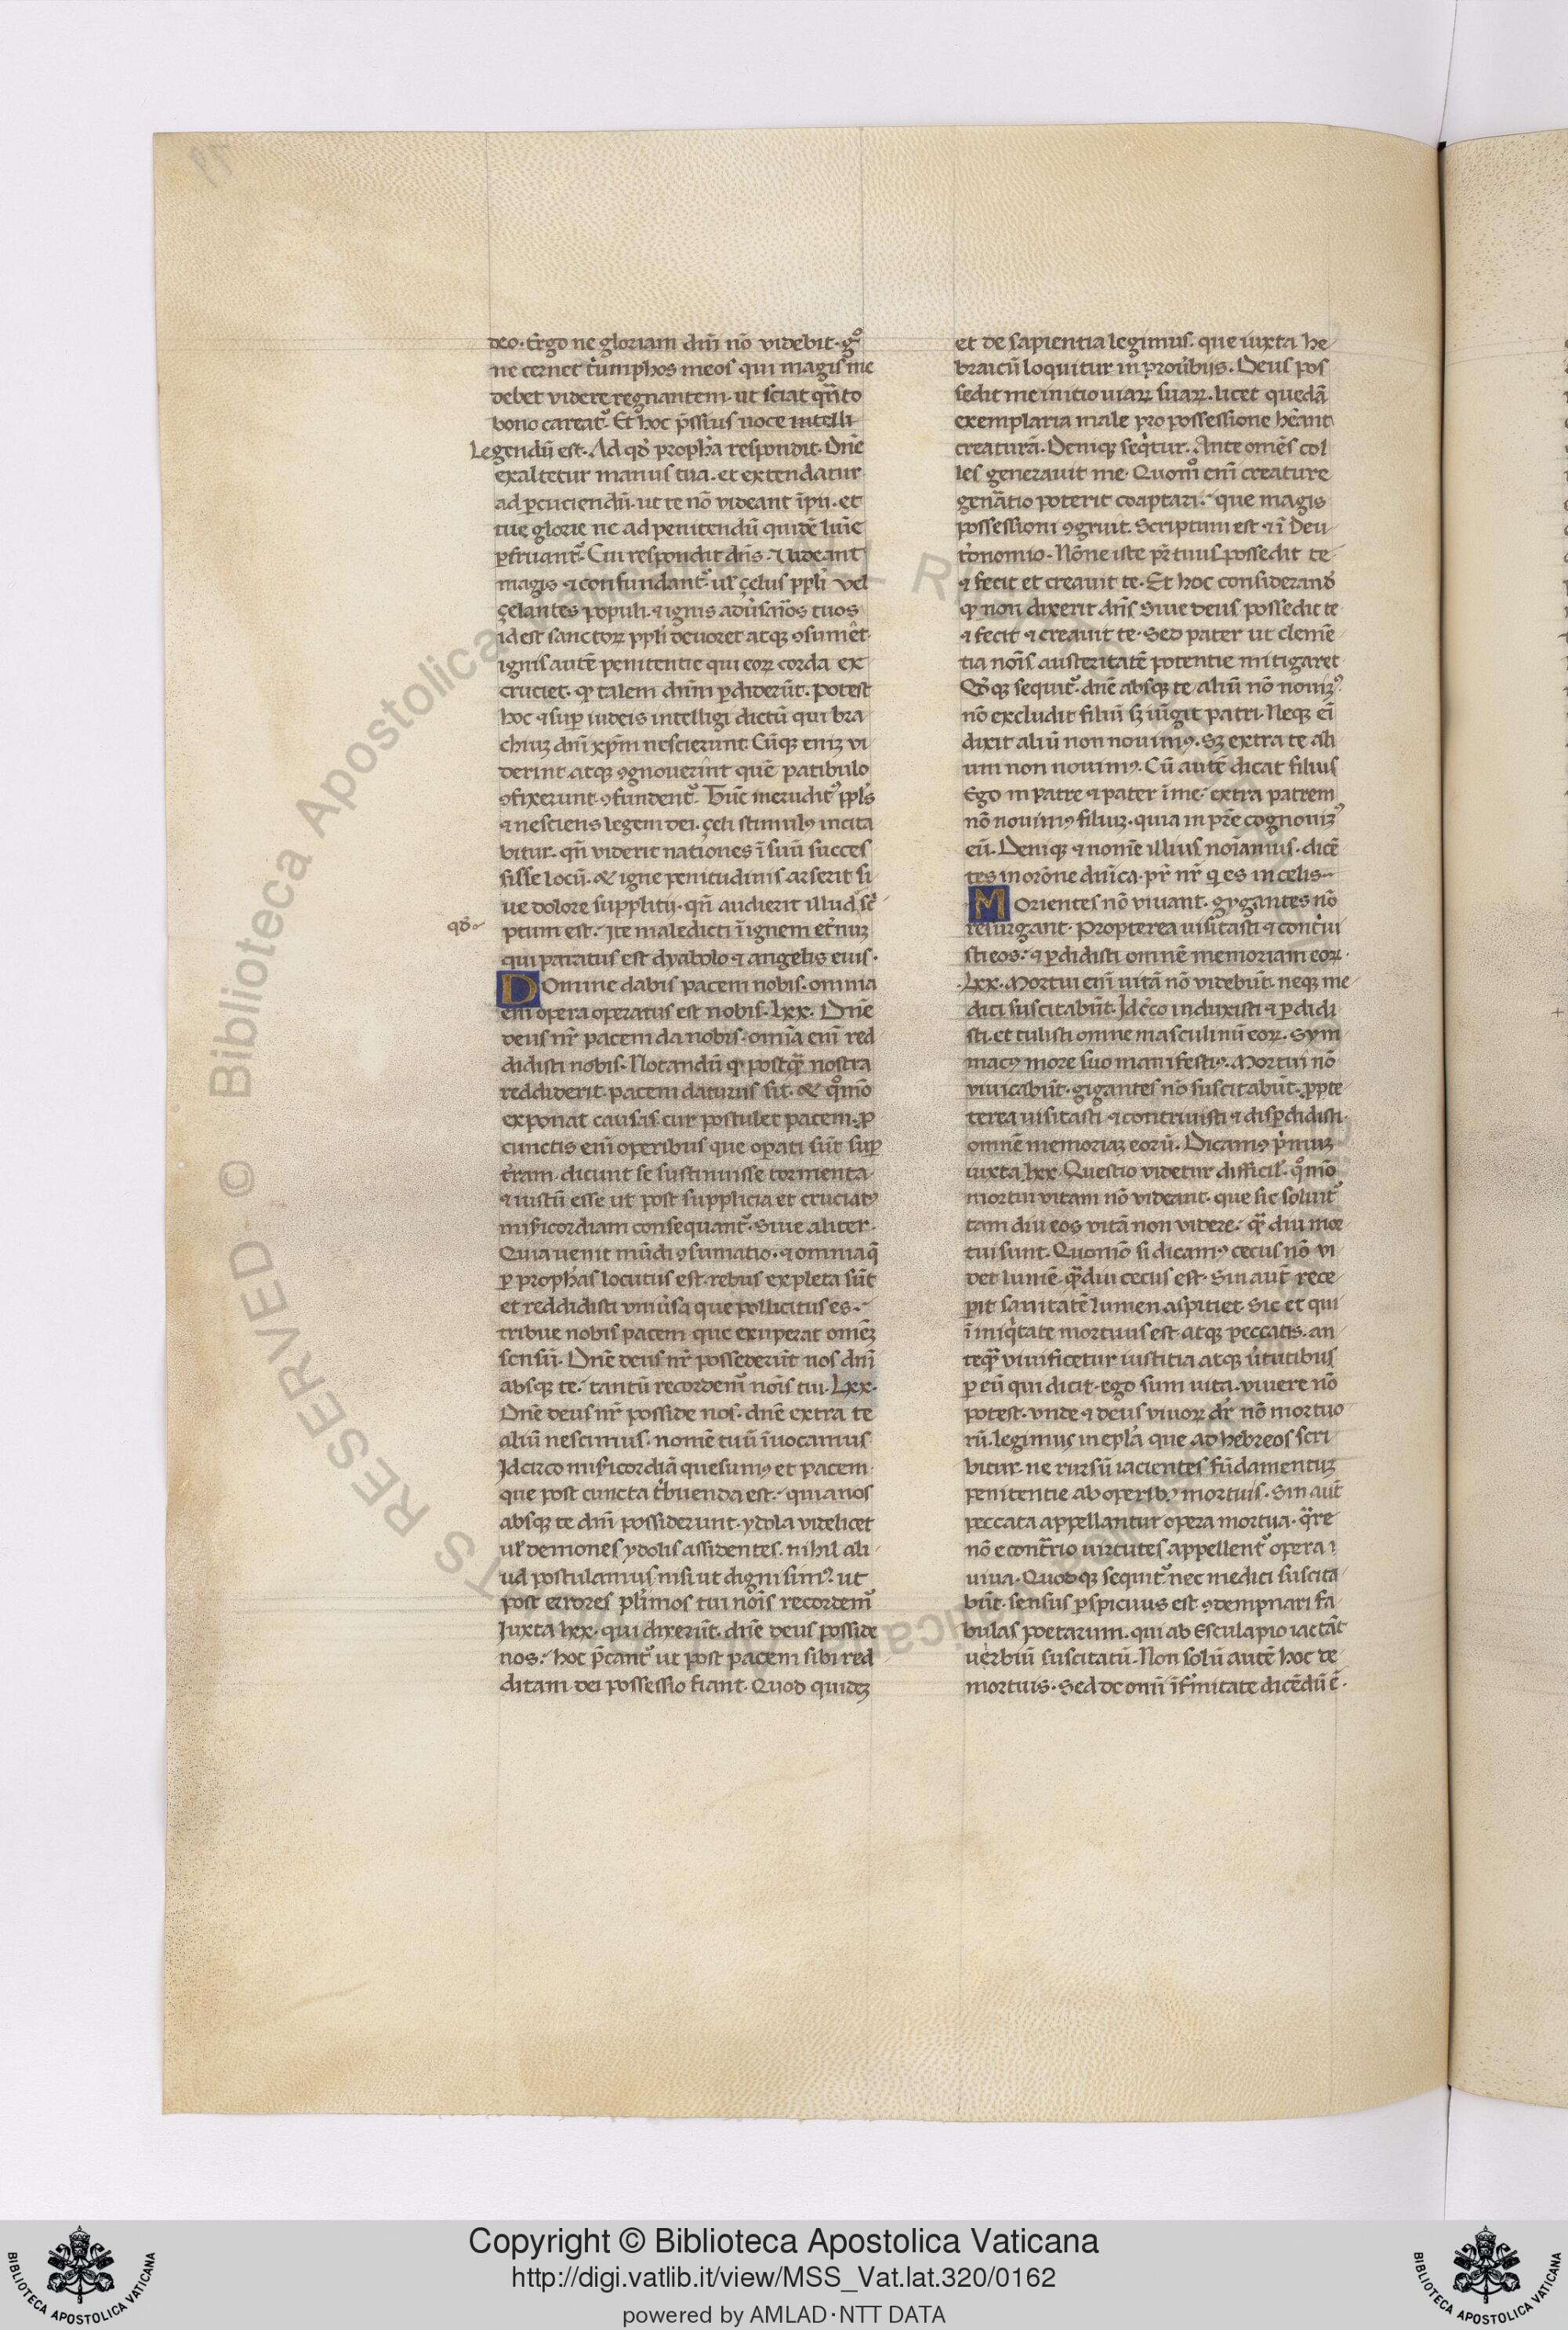 deo. Ergo ne gloriam dn̄i nō videbit. gͦ
ne cernet t̓umphos meos qui magis me
debet videre regnantem. ut sciat qn̄to
bono careat᷑. Et hoc p̄ssius uoce intelli
Legendū est. Ad qd̓ propħa respondit. Dn̄e
exaltetur manus tua. et extendatur
ad ꝑcuciendū. ut te nō videant īpii. et
tue glorie ne ad penitendū quidē lūīe
ꝑfruant᷑. Cui respondit dn̄s. ⁊ uideant
magis ⁊ confundant᷑. ul̓ çelus ppl̓i vel
çelantes populi. ⁊ ignis adūsarios tuos
id est sanctoꝝ ppl̓i deuoret atqꝫ ꝯsumēt
ignis autē penitentie qui eoꝝ corda ex
cruciet. qꝛ talem dn̄m ꝑdiderūt. Potest
hoc ⁊ suꝑ iudeis intelligi dictū qui bra
chiuꝫ dn̄i xp̄m nescierunt. Cūqꝫ eniꝫ vi
derint atqꝫ ꝯgnouerint quē patibulo
ꝯfixerunt. ꝯfundent᷑. Tūc inerudit᷒ ppl̓s
⁊ nesciens legem dei. çeli stimulꝰ incita
bitur. qn̄ viderit nationes ī suū succes
sisse locū. & igne penitudinis arserit si
ue dolore supplitij. qn̄ audierit illud sc̓
qd̓
ptum est. Ite maledicti ī ignem et̓nuꝫ
qui paratus est dyabolo ⁊ angelis eius.
DOmine dabis pacem nobis. omnia
eni opera operatus est nobis. Lxx. Dn̄e
deus nr̄ pacem da nobis. omīa enī red
didisti nobis. Notandū qꝛ postqᷓ nostra
reddiderit. pacem daturus sit. & qͦmō
exponat causas cur postulet pacem. ꝓ
cunctis enī operibus que oꝑati sūt suꝑ
t̓ram. dicunt se sustinuisse tormenta.
⁊ iustū esse ut post supplicia et cruciatꝰ
misericordiam consequant᷑. Siue aliter.
Quia uenit mūdi ꝯsumatio. ⁊ omnia q̄
ꝑ prophās locutus est. rebus expleta sūt
et reddidisti vniūsa que pollicitus es.
tribue nobis pacem que exuperat omēꝫ
sensū. Dn̄e deus nr̄ possederūt nos dn̄i
absqꝫ te. tantū recordem᷑ nōis tui. Lxx.
Dn̄e deus nr̄ posside nos. dn̄e extra te
aliū nescimus. nomē tuū īuocamus.
Idcirco misericordiā quesumꝰ et pacem
que post cuncta t̓buenda est. quia nos
absqꝫ te dn̄i possiderunt. ydola videlicet
ul̓ demones ydolis assidentes. nihil ali
ud postulamus nisi ut digni simꝰ. ut
post errores pl̓imos tui nōis recordem᷑
Iuxta Lxx. qui dixerūt. dn̄e deus posside
nos. hoc p̄cant᷑ ut post pacem sibi red
ditam dei possessio fiant. Quod quidꝫ
et de sapientia legimus. que iuxta he
braicū loquitur in prouerbijs. Deus pos
sedit me initio uiaꝝ suaꝝ. licet quedā
exemplaria male pro possessione hēant
creaturā. Deniqꝫ seq̓tur. Ante omēs col
les generauit me. Quomͦ enī creature
genātio poterit coaptari. que magis
possessioni ꝯgruit. Scriptum est ⁊ ī Deu
t̓onomio. Nōne iste pr̄ tuus possedit te
⁊ fecit et creauit te. Et hoc considerand̓
qꝛ non dixerit dn̄s siue deus possedit te
⁊ fecit ⁊ creauit te. Sed pater ut clemē
tia nōis austeritatē potentie mitigaret
Qd̓qꝫ sequit᷑. dn̄e absqꝫ te aliū nō nouimꝰ
nō excludit filiū sꝫ iūgit patri. Neqꝫ ei
dixit aliū non nouimꝰ. Sꝫ extra te ali
um non nouimꝰ. Cū autē dicat filius
Ego in patre ⁊ pater ī me. extra patrem
nō nouimꝰ filiuꝫ. quia in pr̄e cognouimꝰ
eū. Deniqꝫ ⁊ nomīe illius noīamus. dicē
tes in orōne dn̄ica. pr̄ nr̄ q̓ es in celis
MOrientes nō viuant. gygantes nō
resurgant. Propterea uisitasti ⁊ cont̓ui
sti eos. ⁊ ꝑdidisti omnē memoriam eoꝝ.
Lxx. Mortui enī uitā nō videbūt. neqꝫ me
dici suscitabūt. Idc̓co induxisti ⁊ ꝑdidi
sti. et tulisti omne masculinū eoꝝ. Sym
macꝰ more suo manifestiꝰ. Mortui nō
viuicabūt. gigantes nō suscitabūt. ꝓpte
terea uisitasti ⁊ contriuisti ⁊ disꝑdidisti
omnē memoriaꝫ eorū. Dicamꝰ p̓muꝫ
iuxta Lxx. Questio videtur difficil̓. qͦmō
mortui vitam nō videant. que sic soluit᷑
tam diu eos vitā non videre. qᷓ diu mor
tui sunt. Quomō si dicamꝰ cecus nō vi
det lumē. qᷓdiu cecus est. Sin aūt rece
ꝑit sanitatē lumen aspitiet. Sic et qui
ī iniq̓tate mortuus est atqꝫ peccatis. an
teqᷓ viuificetur iustitia atqꝫ ūtutibus
ꝑ eū qui dicit. ego sum uita. viuere nō
potest. vnde ⁊ deus viuoꝝ dr̄ nō mortuo
rū. legimus in epl̓a que ad hebreos scri
bitur. ne rursū iacientes fūdamentuꝫ
penitentie ab operibꝰ mortuis. Sin aūt
peccata appellantur opera mortua. qᷓre
nō e cont̄rio uirtutes appellent᷑ opera
uiua. Quodqꝫ sequit᷑ nec medici suscita
būt. sensus ꝑspicuus est ꝯdempnari fa
bulas poetarum. qui ab Esculapio iactāt
uerbiū suscitatū. Non solū autē hoc de
mortuis. Sed de omī īf̓mitate dicēdū ē.
Copyright © Biblioteca Apostolica Vaticana
http://digi.vatlib.it/view/MSS_Vat.lat.320/0162
powered by AMLAD·NTT DATA